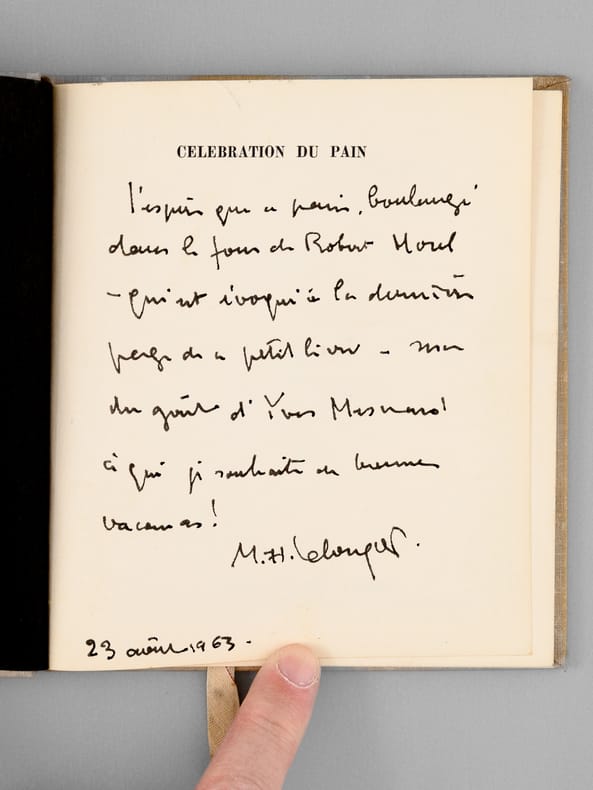 CELEBRATION DU PAIN
J'espère que ce pain, boulangé
dans le four de Robert Morel
- qui est évoqué à la dernière
page de ce petit livre - sera
du goût d'Yves Mesnard
à qui je souhaite de bonnes
vacances !
M.H. Lelongt.
23 août 1963.